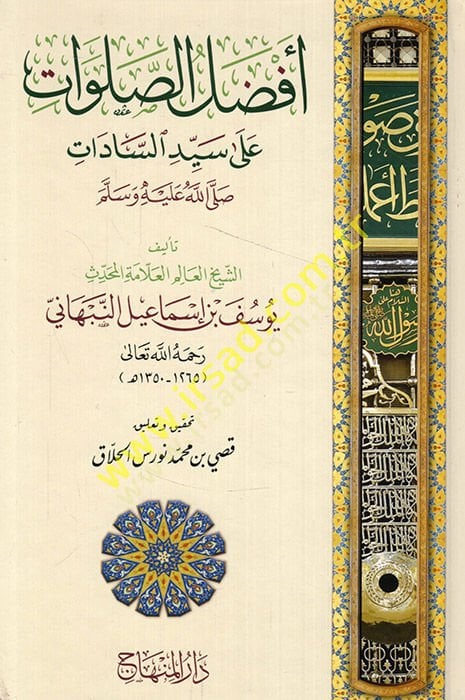 أفضل الصلوات
على سيد السادات
صلى الله عليه وسلم
تأليف
الشيخ العالم العلامة المحدث
يوسف بن إسماعيل النبهاني
رحمه الله تعالى
(١٢٦٥ - ١٣٥٠هـ)
تحقيق وتعليق
قصي بن محمد نورس الحلاق
دار المنهاج
www.irsad.com.tr